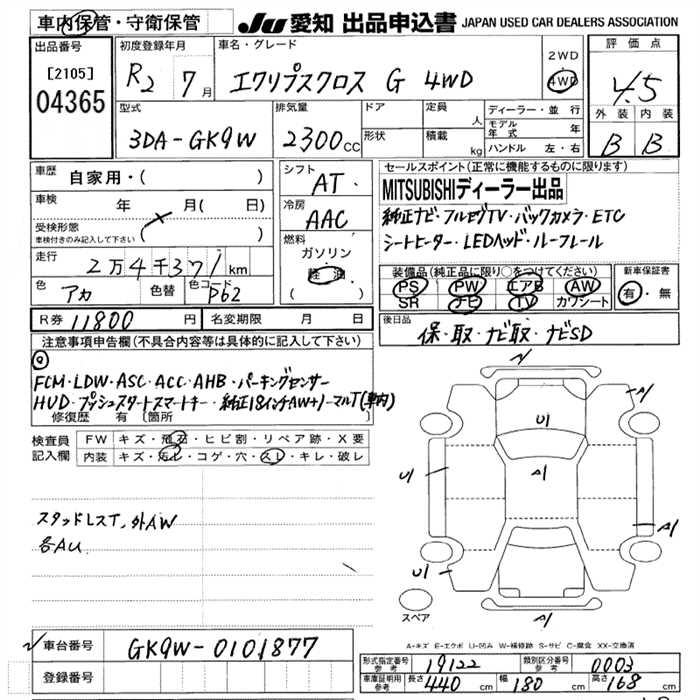 車内保管・守衛保管
JU 愛知 出品申込書 JAPAN USED CAR DEALERS ASSOCIATION
出品番号
[2105]
04365
初度登録年月
R2 7月
車名・グレード
エクリプスクロス G 4WD
2WD
4WD
評価点
4.5
外装 内装
B B
型式
3DA-GK9W
排気量
2300cc
ドア
形状
定員 人
積載 kg
ディーラー・並行
モデル年式 年
ハンドル 左・右
車歴
自家用・( )
車検 年 月( 日)
受検形態
車検付きのみ記入して下さい ( )
走行
2万4千371km
色
アカ
色替
色コード
P62
シフト
AT
冷房
AAC
燃料
ガソリン
軽油
( )
セールスポイント(正常に機能するものに限ります)
MITSUBISHIディーラー出品
純正ナビ・フルセグTV・バックカメラ・ETC
シートヒーター・LEDヘッド・ルーフレール
装備品(純正品に限り○をつけてください)
PS PW エアB AW
SR ナビ TV カワシート
新車保証書
有・無
R券 11800円
名変期限 月 日
後日品
保・取・ナビ取・ナビSD
注意事項申告欄(不具合内容等は具体的に記入して下さい)
FCM・LDW・ASC・ACC・AHB・パーキングセンサー
HUD・プッシュスタートスマートキー・純正18インチAW+ノーマルT(車内)
修復歴 有 [箇所 ]
検査員記入欄
FW キズ・飛石・ヒビ割・リペア跡・X要
内装 キズ・汚レ・コゲ・穴・スレ・キレ・破レ
スタッドレスT、外AW
各AU
A1
U1
U1
A1
A1
A1
U1
スペア
A-キズ E-エクボ U-凹み W-補修跡 S-サビ C-腐食 XX-交換済
車台番号
GK9W-0101877
登録番号
形式指定番号 参考 19122
類別区分番号 参考 0003
車庫証明用 参考 長さ 440cm 幅 180cm 高さ 168cm